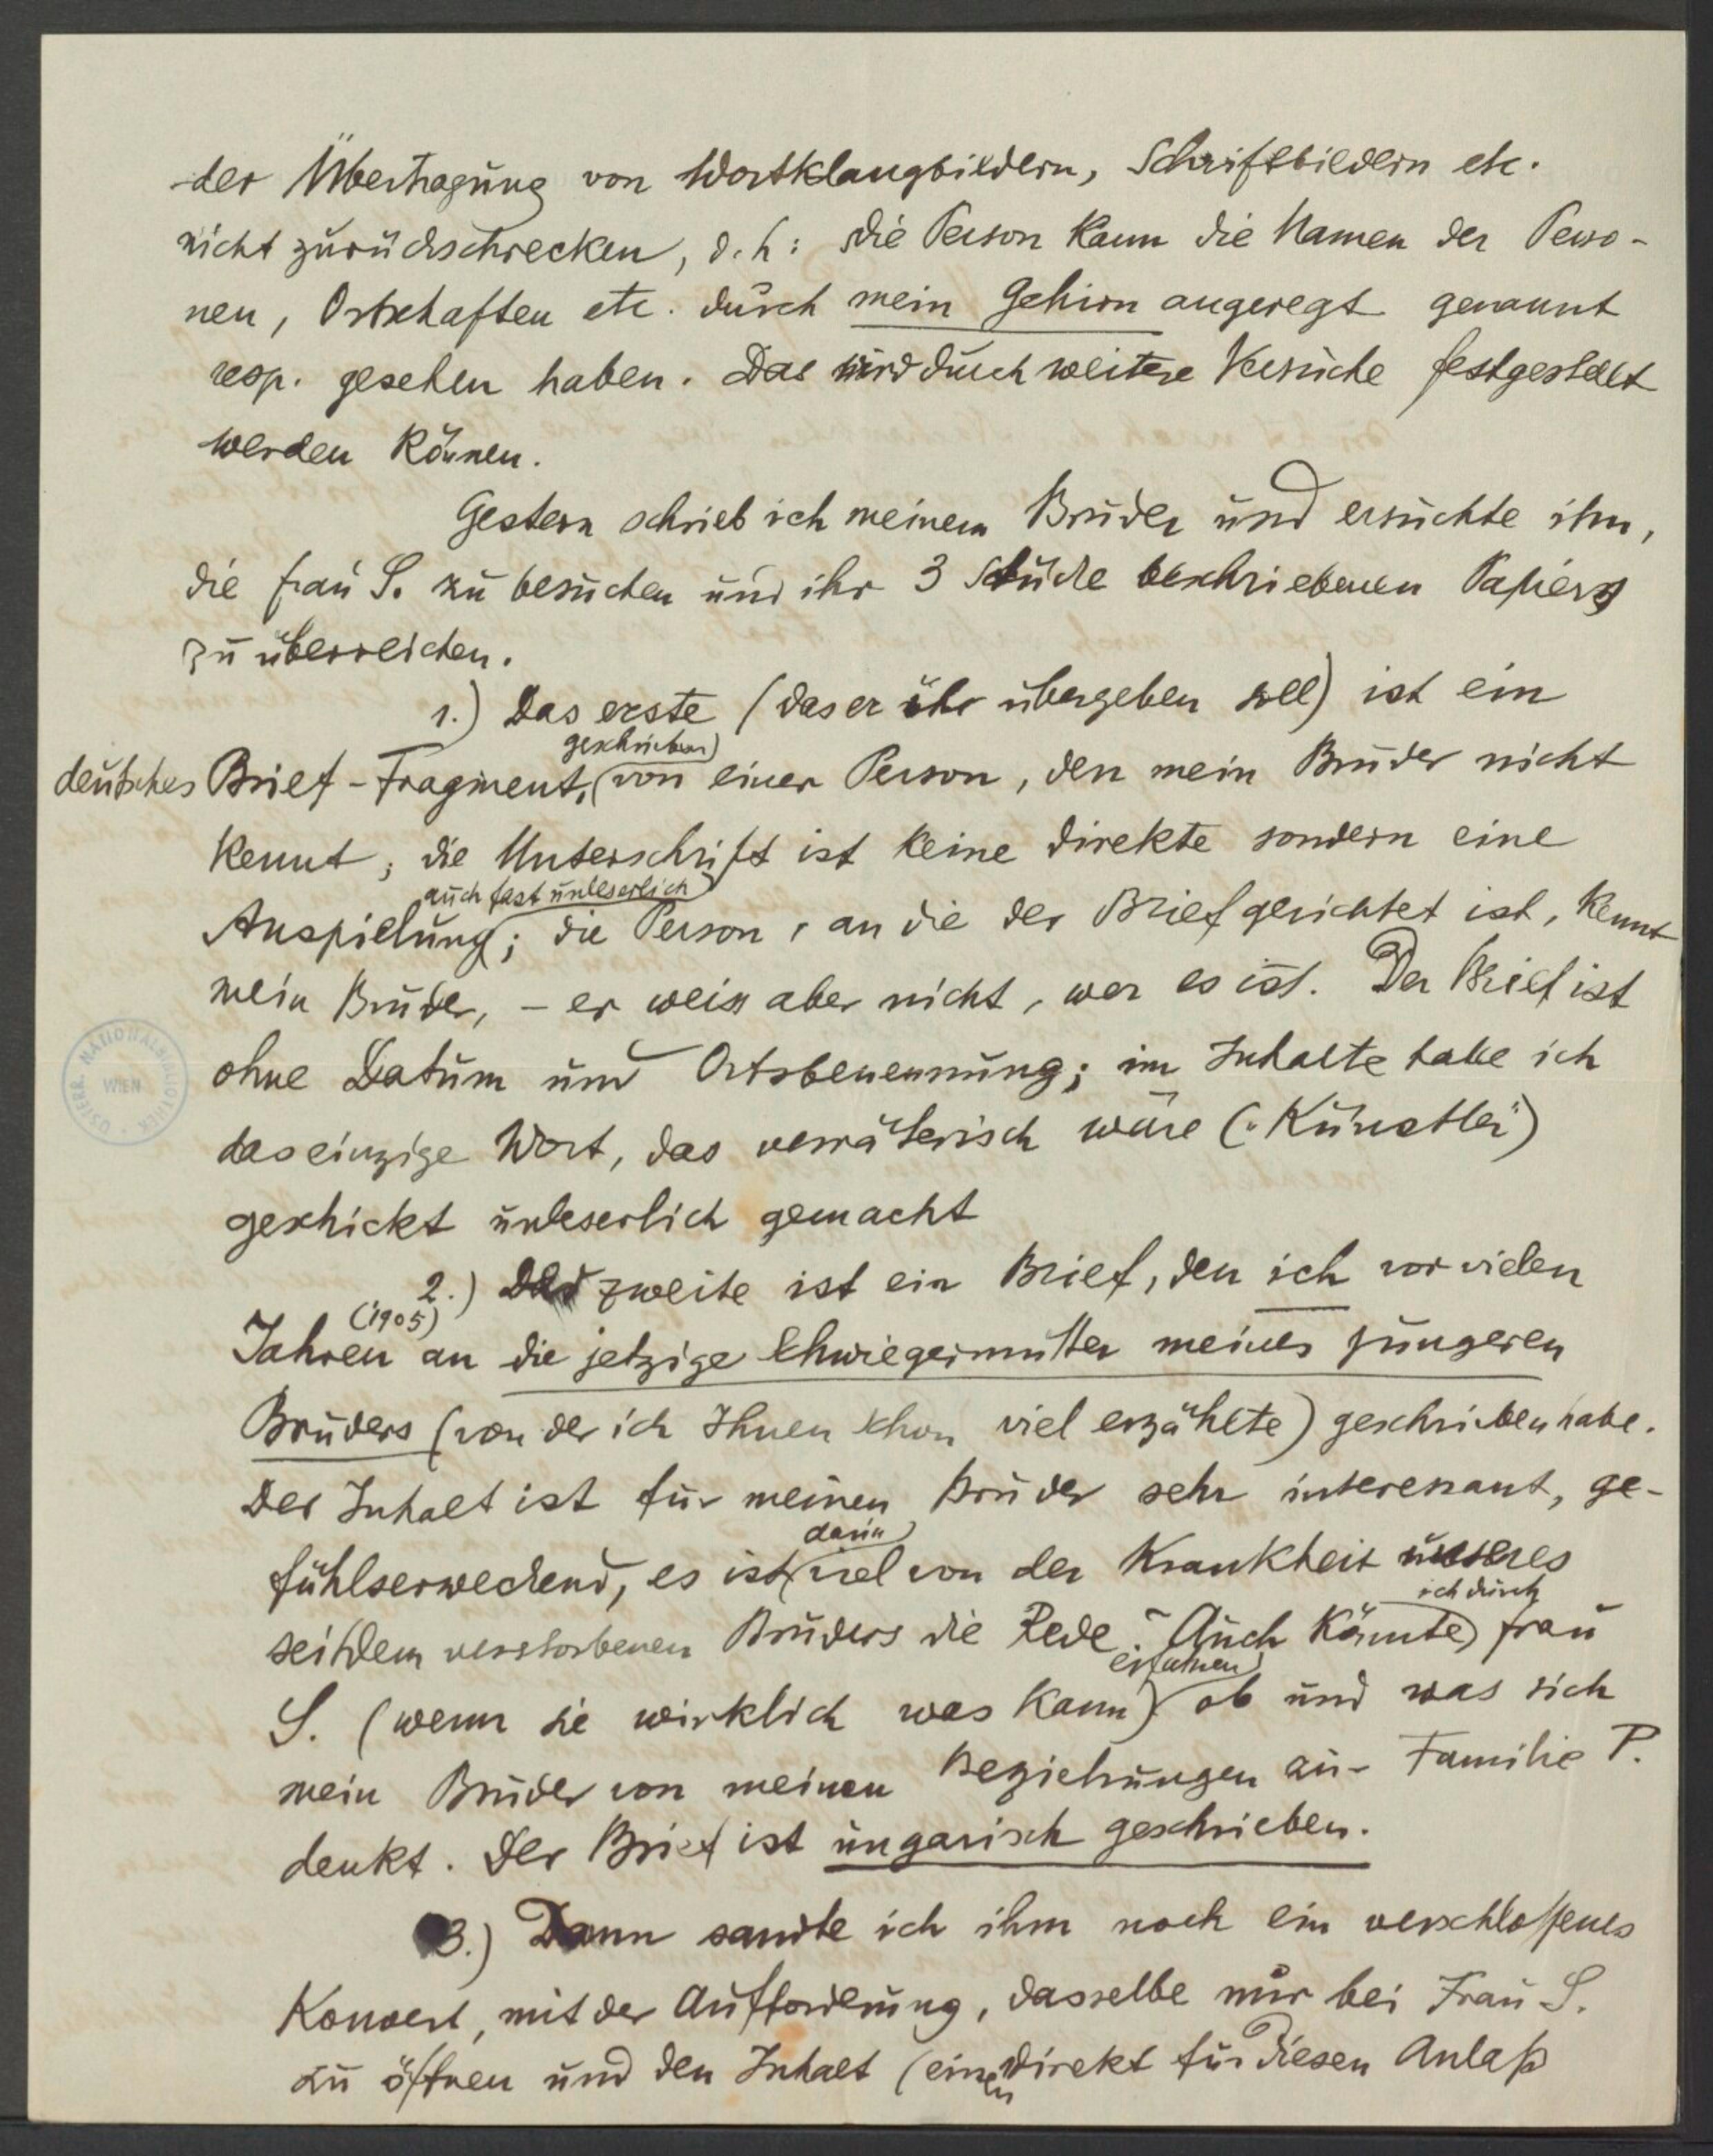 der Übertragung von Wortklangbildern, Schriftbildern etc.
nicht zurückschrecken, d.h: die Person kann die Namen der Perso-
nen, Ortschaften etc. durch mein Gehirn angeregt genannt
resp. gesehen haben. Das wird durch weitere Versuche festgestellt
werden können.
Gestern schrieb ich meinem Bruder und ersuchte ihn,
die Frau S. zu besuchen und ihr 3 Stücke beschriebenen Papiers
zu überreichen.
1.) Das erste (das er ihr übergeben soll) ist ein
geschrieben
deutsches Brief-Fragment, von einer Person, den mein Bruder nicht
kennt; die Unterschrift ist keine direkte sondern eine
auch fast unleserlich
Anspielung; die Person, an die der Brief gerichtet ist, kennt
mein Bruder, – er weiss aber nicht, wer es ist. Der Brief ist
ohne Datum und Ortsbenennung; im Inhalte habe ich
das einzige Wort, das verräterisch wäre („Künstler")
geschickt unleserlich gemacht
2.) Das zweite ist ein Brief, den ich vor vielen
(1905)
Jahren an die jetzige Schwiegermutter meines jüngeren
Bruders (von der ich Ihnen schon viel erzählte) geschrieben habe.
Der Inhalt ist für meinen Bruder sehr interessant, ge-
darin
fühlserweckend, es ist viel von der Krankheit unseres
ich durch
seitdem verstorbenen Bruders die Rede. – Auch könnte Frau
erfahren
S. (wenn sie wirklich was kann) ob und was sich
mein Bruder von meinen Beziehungen zur Familie P.
denkt. Der Brief ist ungarisch geschrieben.
3.) Dann sandte ich ihm noch ein verschlossenes
Konvert, mit der Aufforderung, dasselbe nur bei Frau S.
zu öffnen und den Inhalt (einen direkt für diesen Anlaß
ÖSTERR. NATIONALBIBLIOTHEK
WIEN